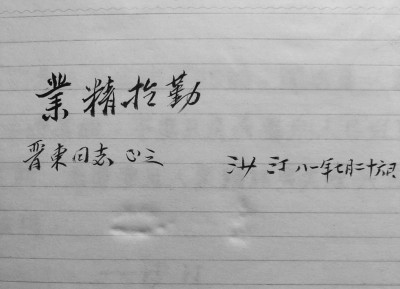 業精於勤
晋東同志 正之 洪汀 八一年七月二十六日